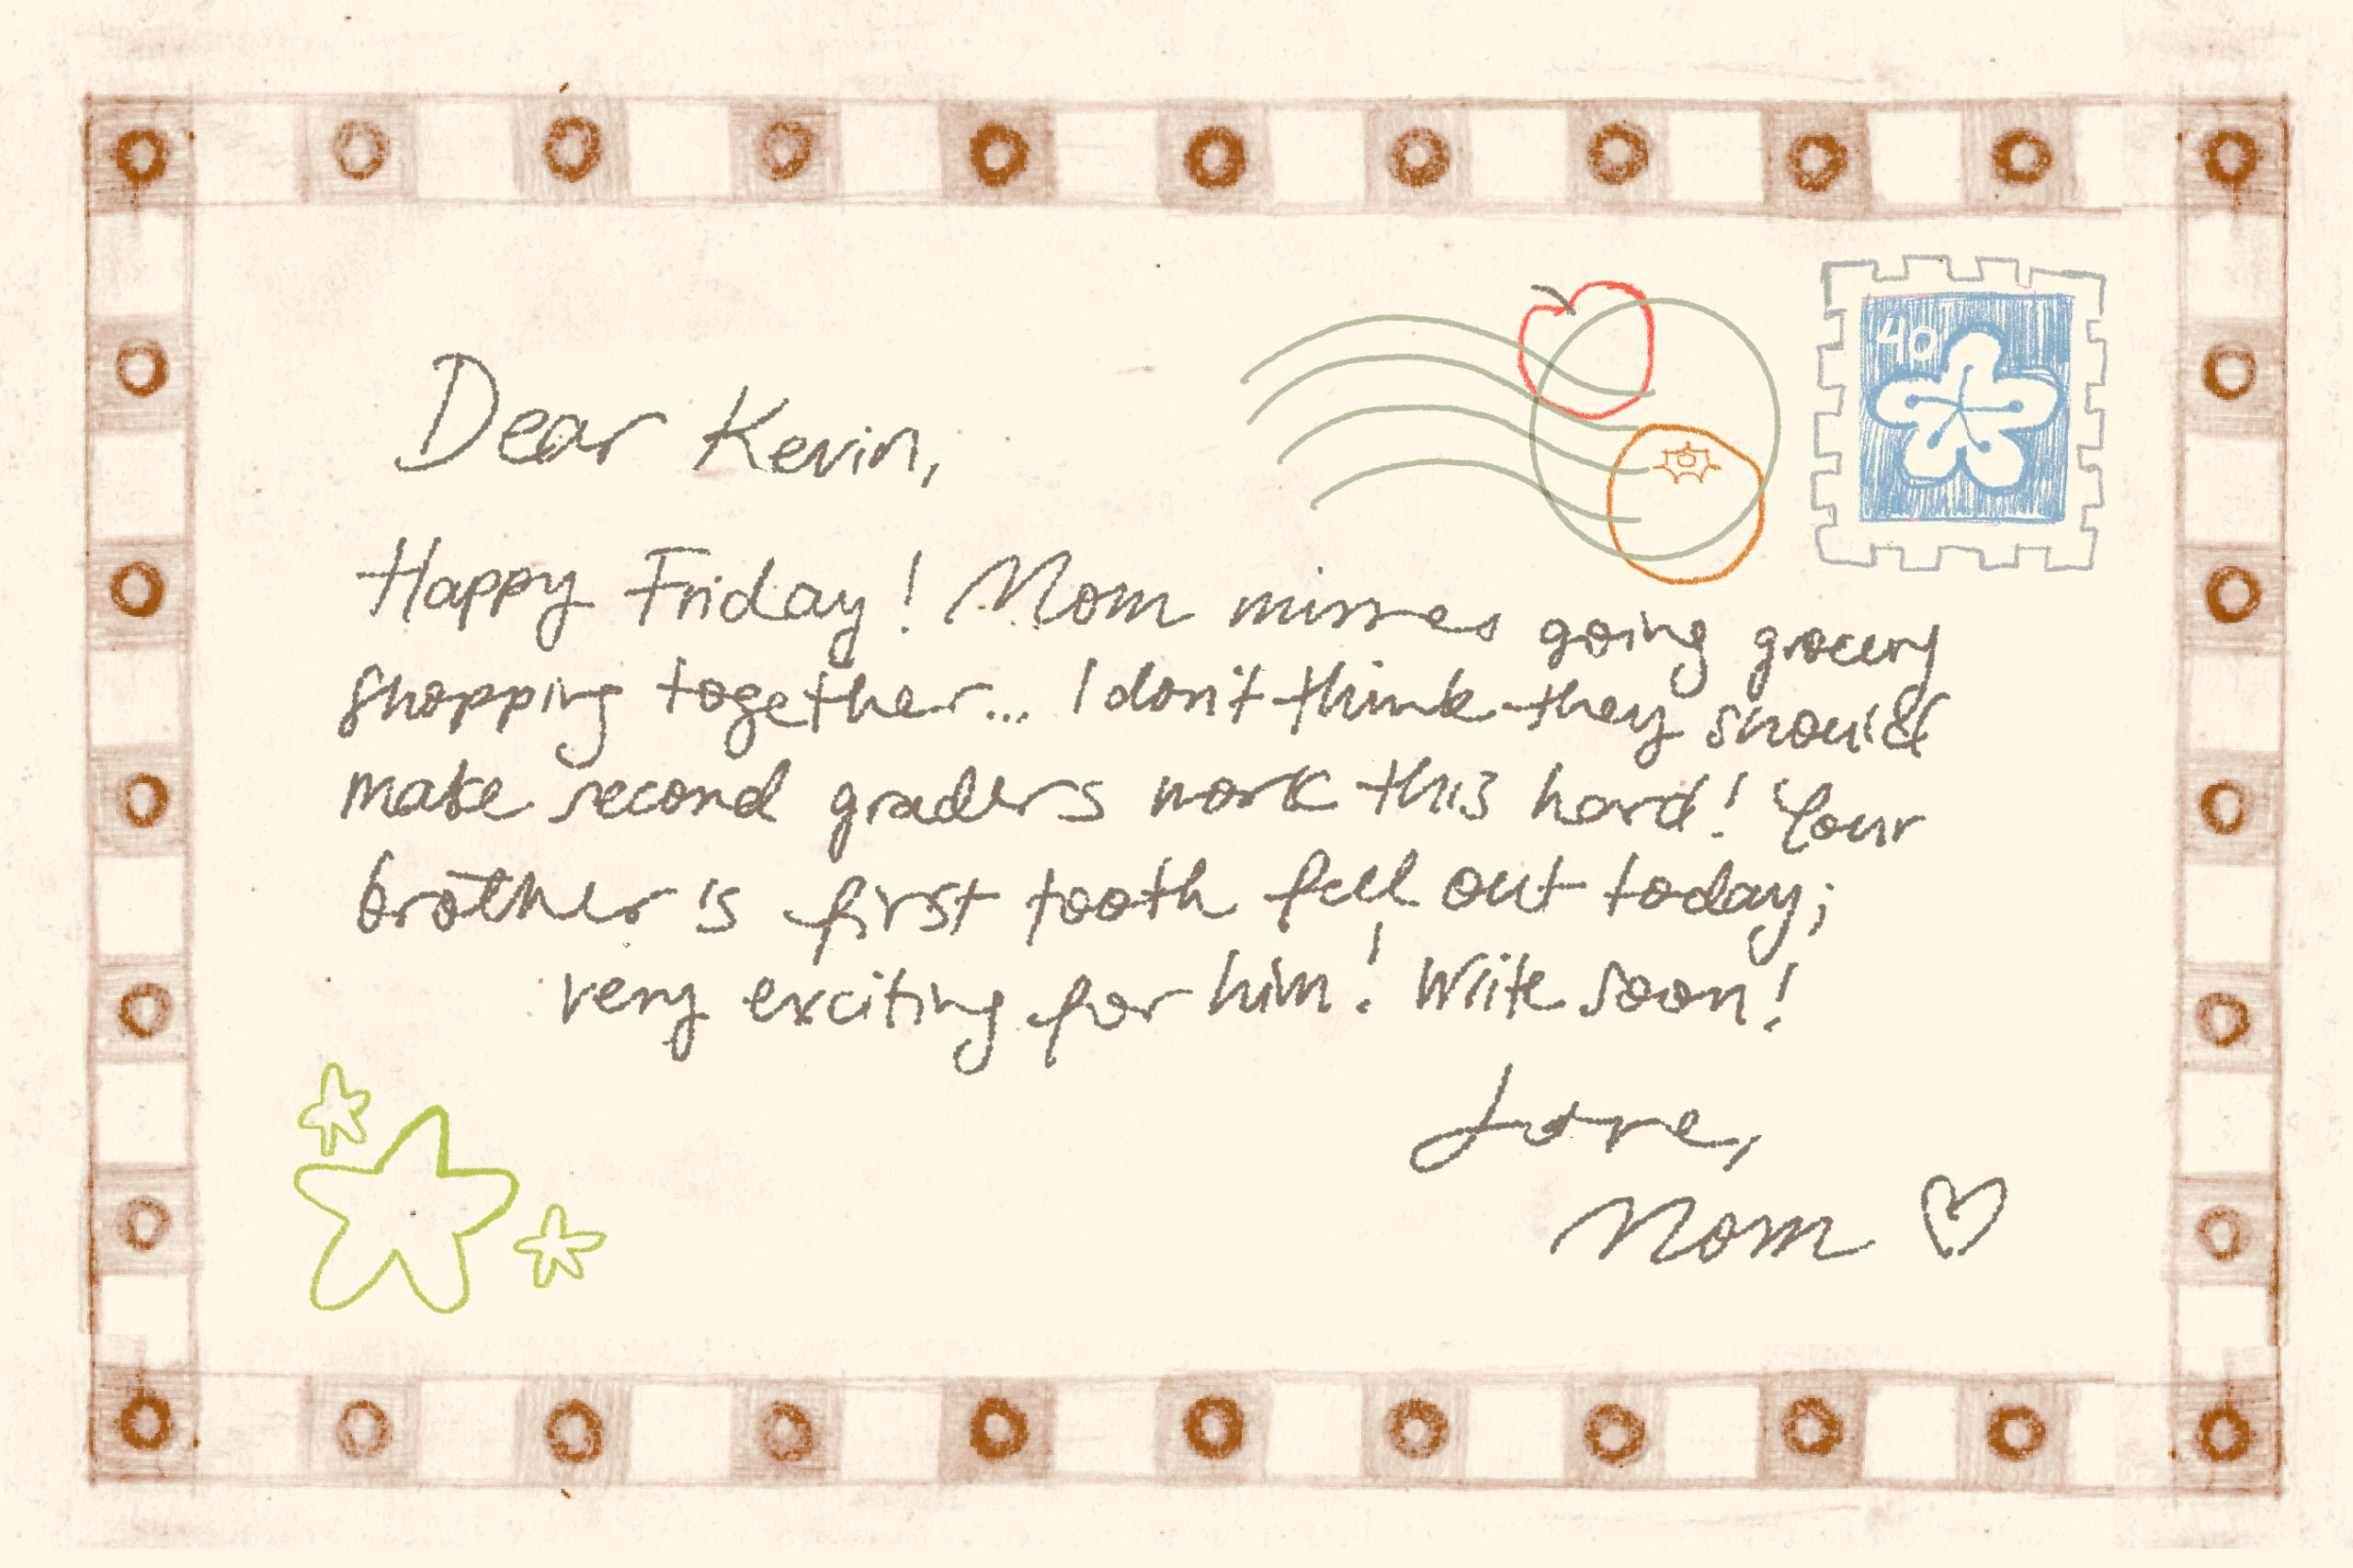 40
Dear Kevin,
Happy Friday! Mom misses going grocery
shopping together... I don't think they should
make second graders work this hard! Your
brother's first tooth fell out today;
very exciting for him! Write soon!
Love,
Mom